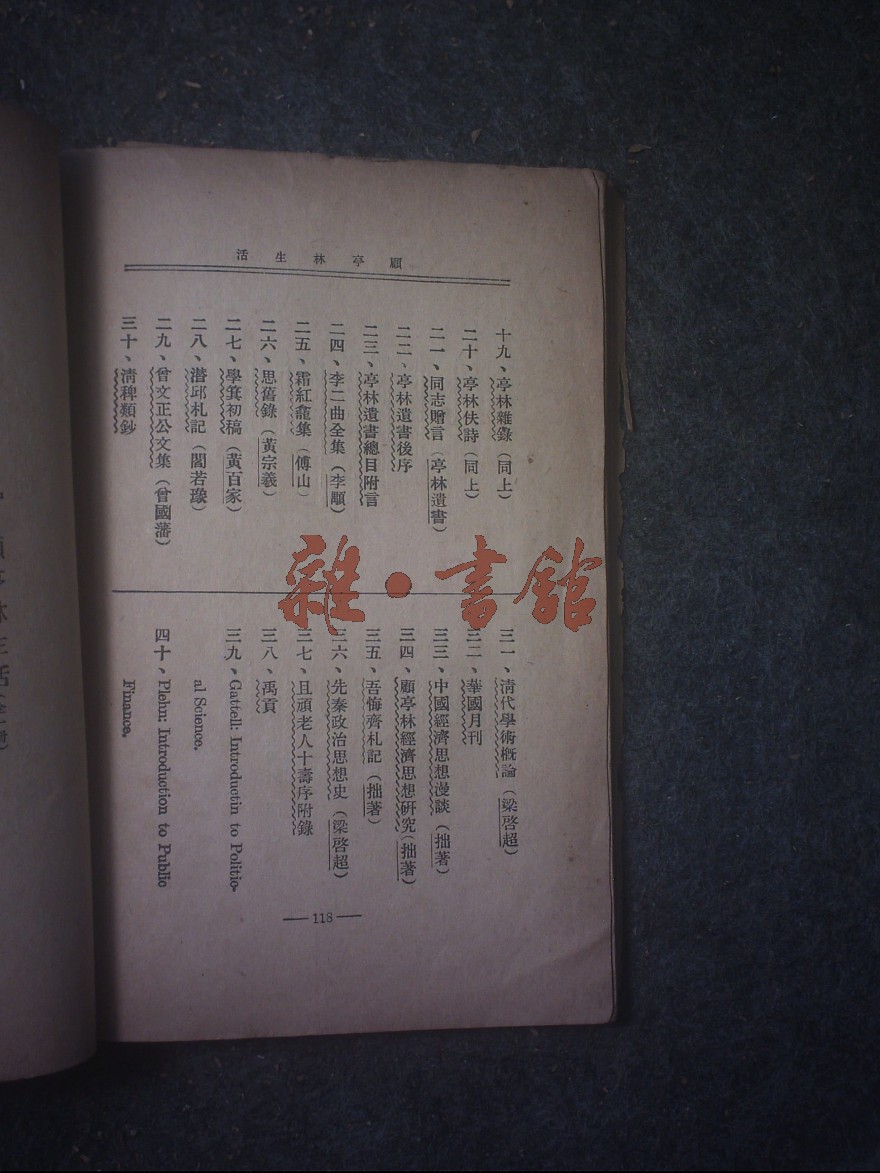 顧亭林生活
十九、亭林雜錄（同上）
二十、亭林佚詩（同上）
二一、同志贈言（亭林遺書）
二二、亭林遺書後序
二三、亭林遺書總目附言
二四、李二曲全集（李顒）
二五、霜紅龕集（傅山）
二六、思舊錄（黃宗羲）
二七、學箕初稿（黃百家）
二八、潛邱札記（閻若璩）
二九、曾文正公文集（曾國藩）
三十、清稗類鈔
三一、清代學術概論（梁啓超）
三二、華國月刊
三三、中國經濟思想漫談（拙著）
三四、顧亭林經濟思想研究（拙著）
三五、吾悔齊札記（拙著）
三六、先秦政治思想史（梁啓超）
三七、且頑老人十壽序附錄
三八、禹貢
三九、Gattell: Introductin to Politic-
al Science.
四十、Plehn: Introduction to Public
Finance.
— 118 —
雜·書館